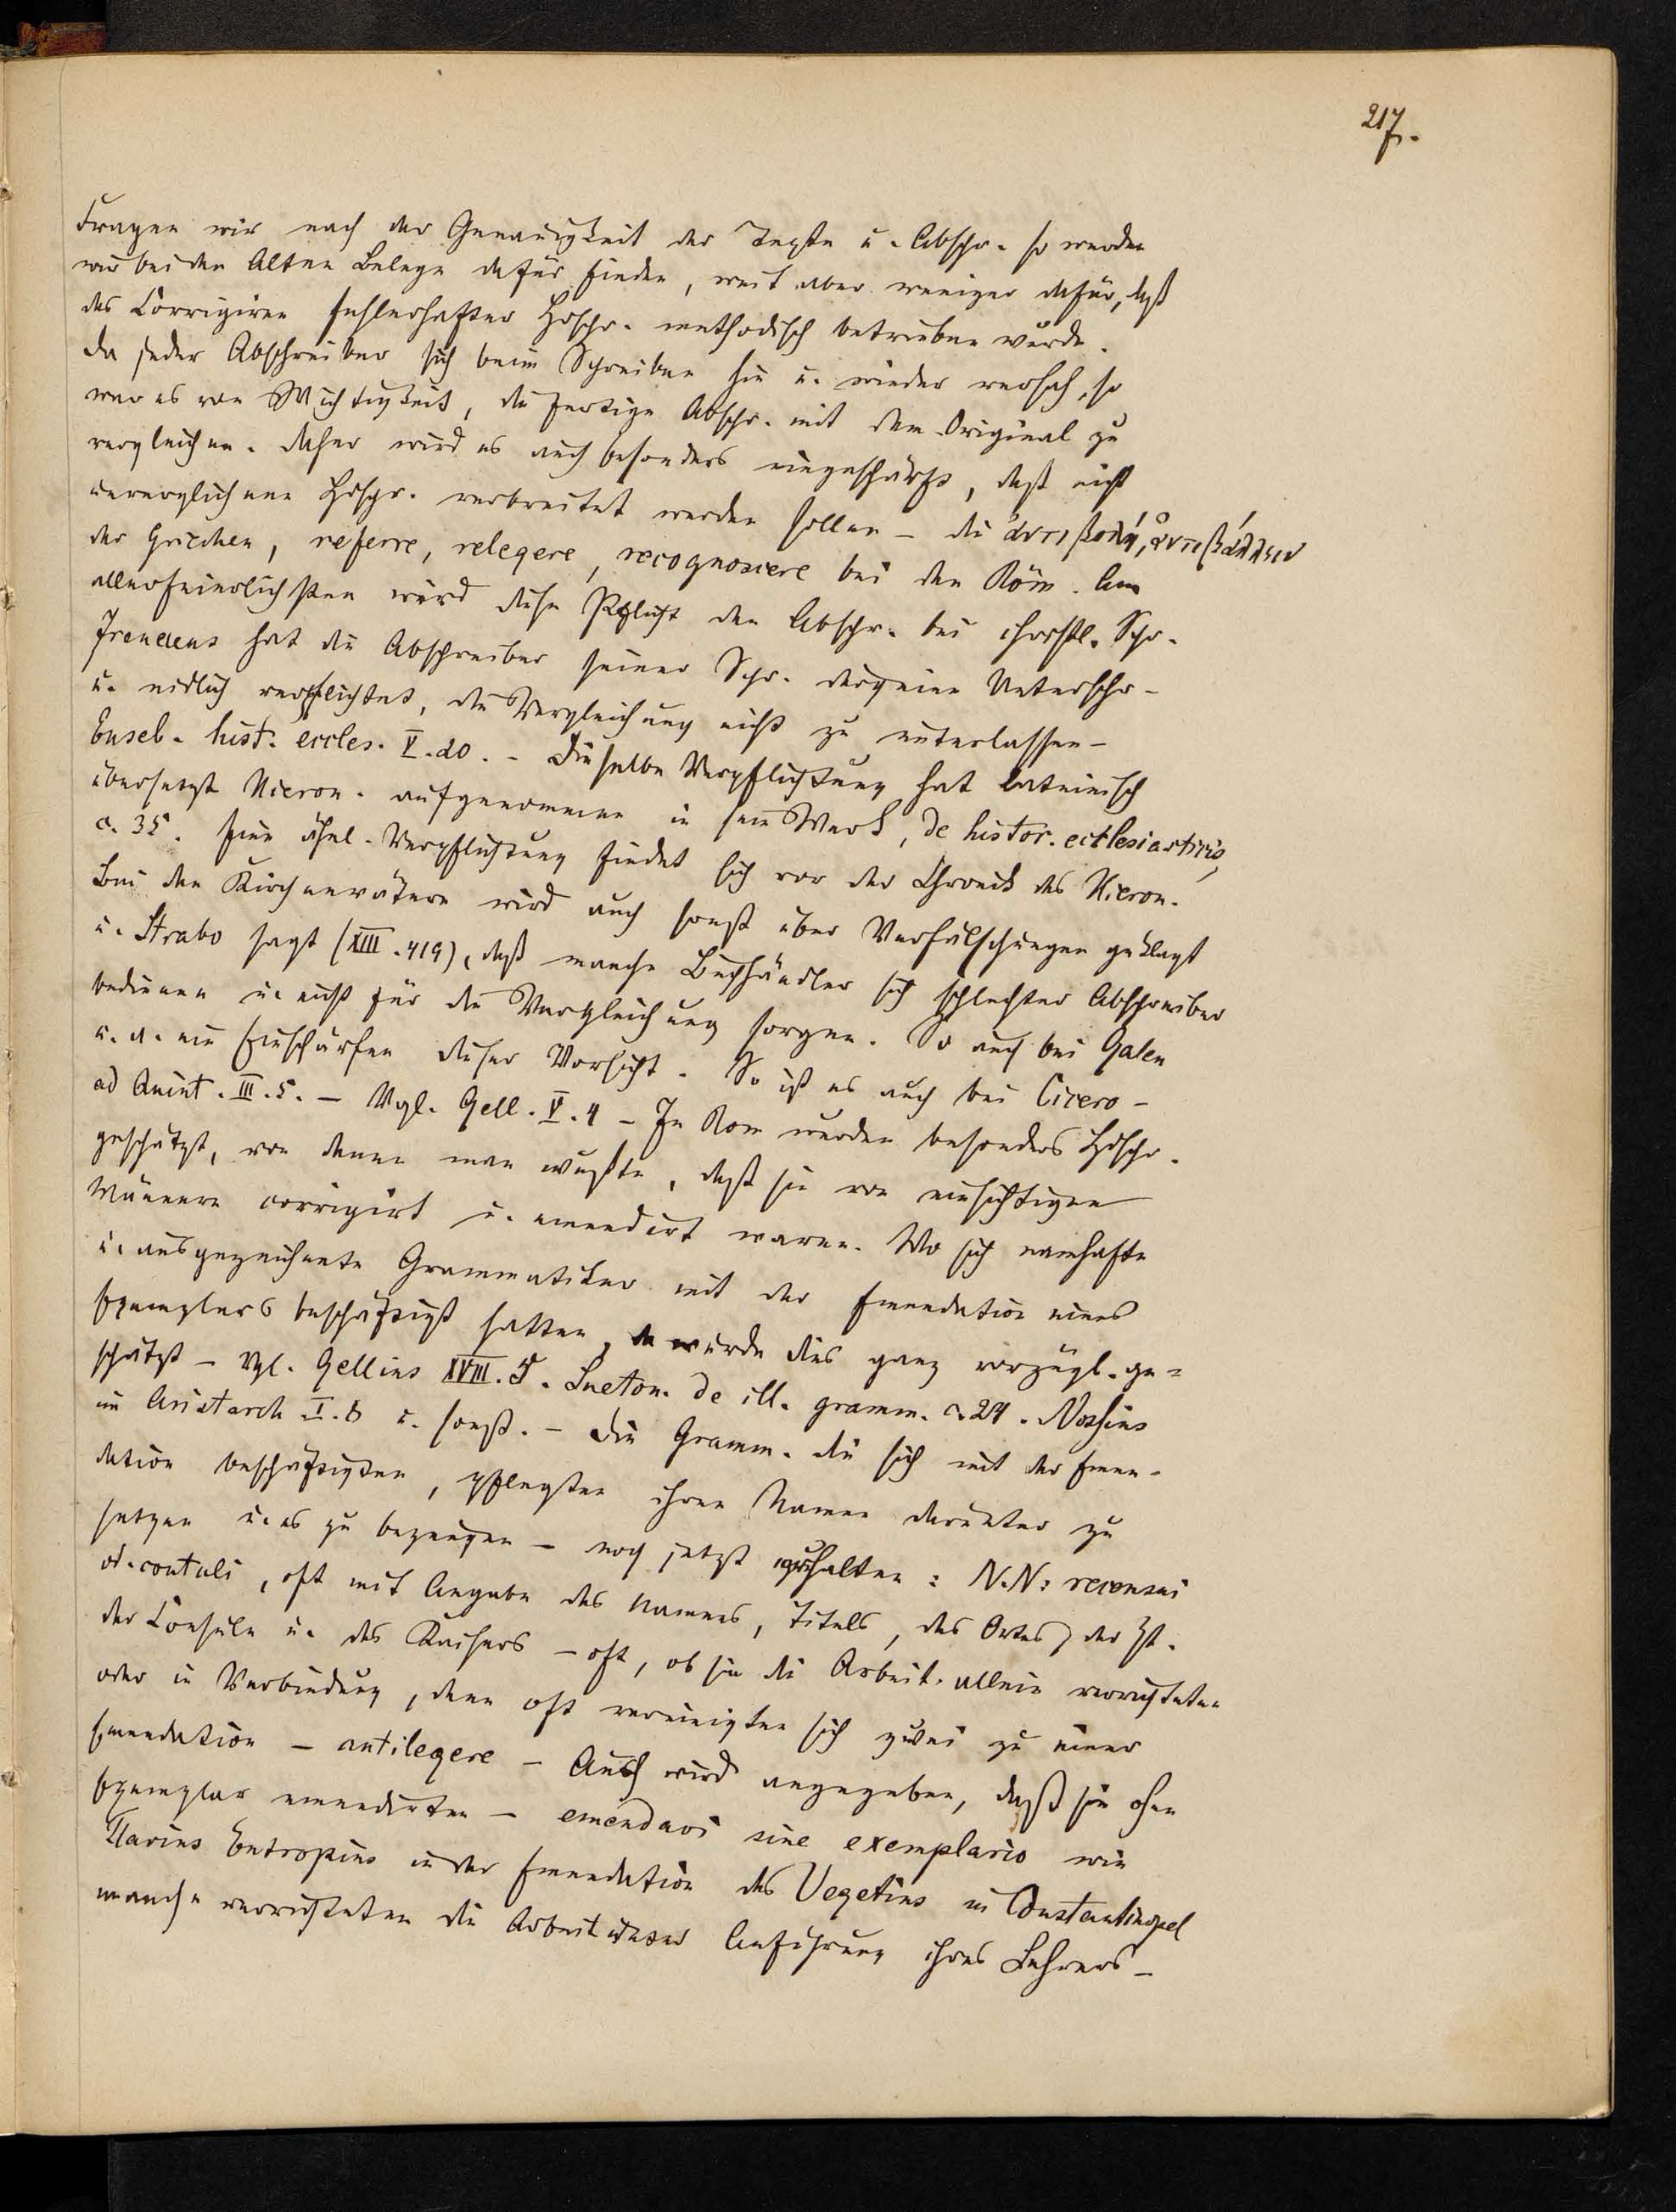 217.
Fragen wir nach der Genauigkeit der Texte u. Abschr. so werden
wir bei den Alten Belege dafür finden, weit aber weniger dafür, daß
das Corrigiren fehlerhafter Hdschr. methodisch betrieben wurde.
Da jeder Abschreiber sich beim Schreiben hie u. wieder versah, so
war es von Wichtigkeit, die fertige Abschr. mit dem Original zu
vergleichen. Daher wird es auch besonders eingeschärft, daß nicht
unverglichene Hdschr. verbreitet werden sollen – die ἀντιβολή, ἀντιβάλλειν
der Griechen, referre, relegere, recognoscere bei den Röm. Am
allerfeierlichsten wird diese Pflicht den Abschr. bei christl. Schr.
Irenaeus hat die Abschreiber seiner Schr. durch eine Unterschr.
u. eidlich verpflichtet, die Vergleichung nicht zu unterlassen –
Euseb. hist. eccles. V. 20. – Dieselbe Verpflichtung hat lateinisch
übersetzt Hieron. aufgenommen in sein Werk, de histor. ecclesiasticis,
c. 35. Eine ähnl. Verpflichtung findet sich vor der Chronik des Hieron.
Bei den Kirchenvätern wird auch sonst über Verfälschungen geklagt
u. Strabo sagt (XIII. 419), daß manche Buchhändler sich schlechter Abschreiber
bedienen u. nicht für die Vergleichung sorgen. So auch bei Galen
u. a. ein Einschärfen dieser Vorsicht. So ist es auch bei Cicero –
ad Quint. III. 5. – Vgl. Gell. V. 4 – In Rom wurden besonders Hdschr.
geschätzt, von denen man wußte, daß sie von einsichtigen
Männern corrigirt u. emendirt waren. Wo sich namhafte
u. ausgezeichnete Grammatiker mit der Emendation eines
Exemplars beschäftigt hatten, da wurde dies ganz vorzügl. ge=
schätzt – Vgl. Gellius XVIII. 5. Sueton. de ill. gramm. c. 24.
im Aristarch I. 8 u. sonst. – Die Gramm. die sich mit der Emen-
dation beschäftigten, pflegten ihren Namen darunter zu
setzen u. es zu bezeugen – noch jetzt erhalten: N.N: recensui
od. contuli, oft mit Angabe des Namens, Titels, des Ortes, der Zt.
der Consuln u. des Kaisers – oft, ob sie die Arbeit allein verrichteten
oder in Verbindung, denn oft vereinigten sich zwei zu einer
Emendation – antilegere – Auch wird angegeben, daß sie ohne
Exemplar emendirten – emendavi sine exemplario wie
Flavius Eutropius in der Emendation des Vegetius in Constantinopel
manche verrichteten die Arbeit unter Anführung ihres Lehrers –